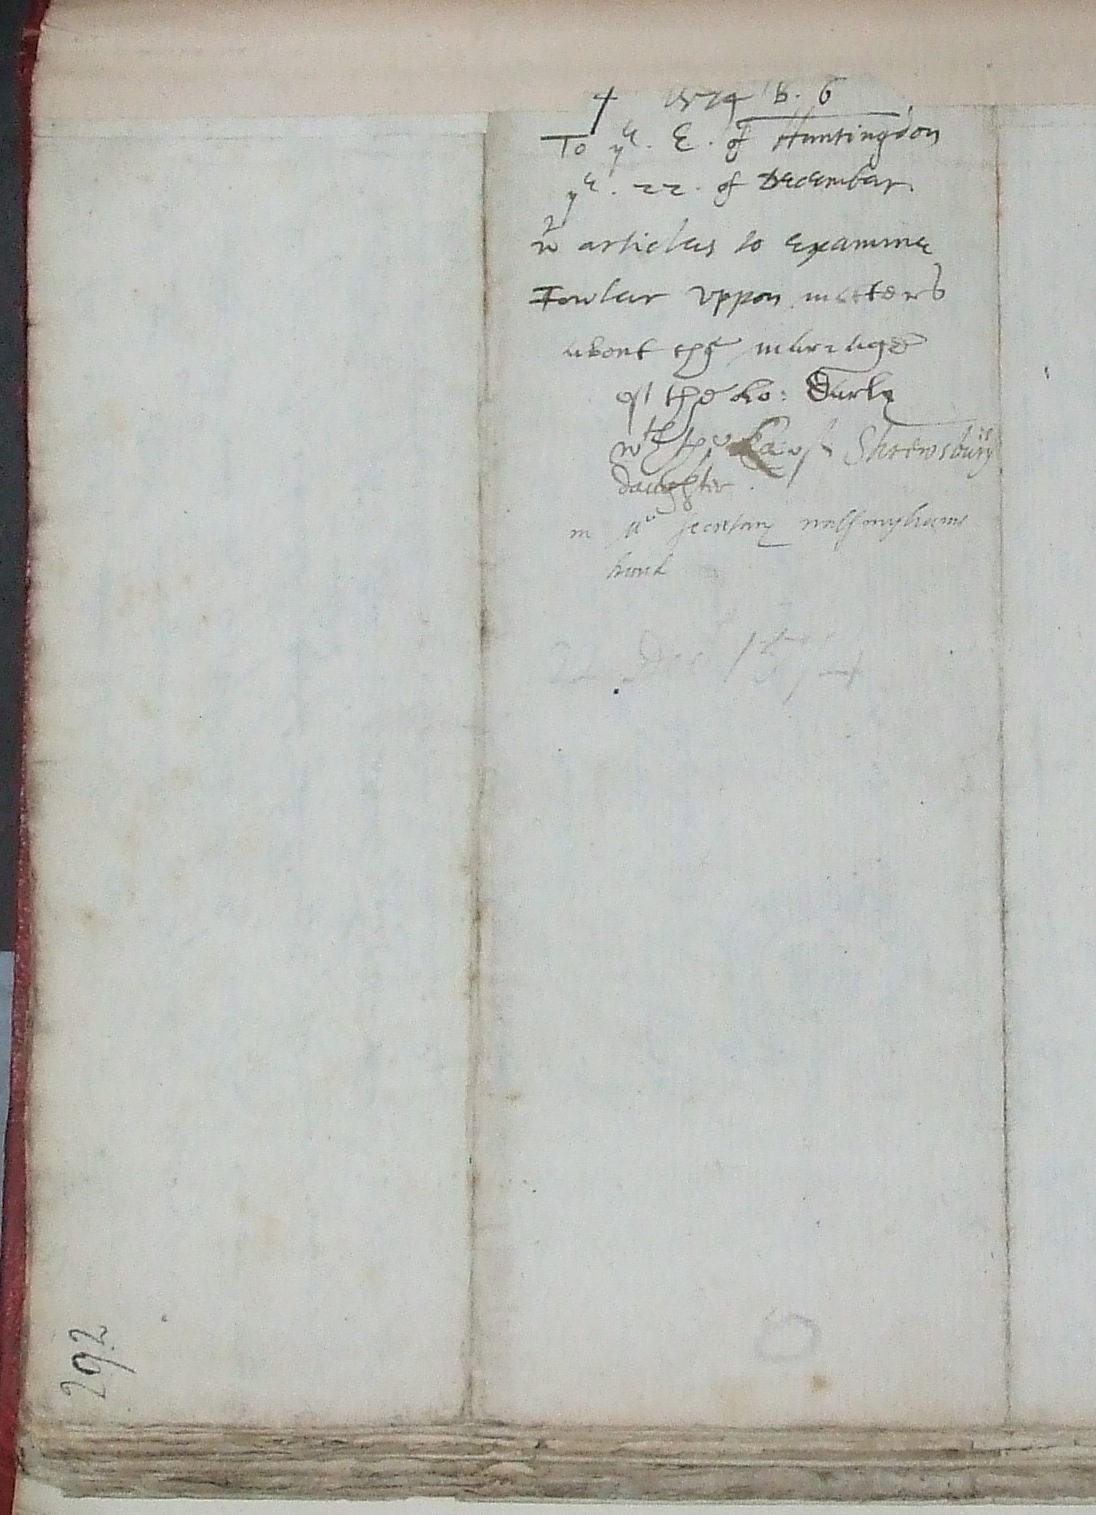 1574 B. 6
To yᵉ. E. of Huntingdon
yᵉ. 22. of December.
wᵗ articles to examine
Fowler vppon matters
about the mariage
of the Lo: Darly
wᵗʰ the La of Shrewsburys
daughter.
in Mʳ secretary walsinghams
hand
22 Dec 1574
292